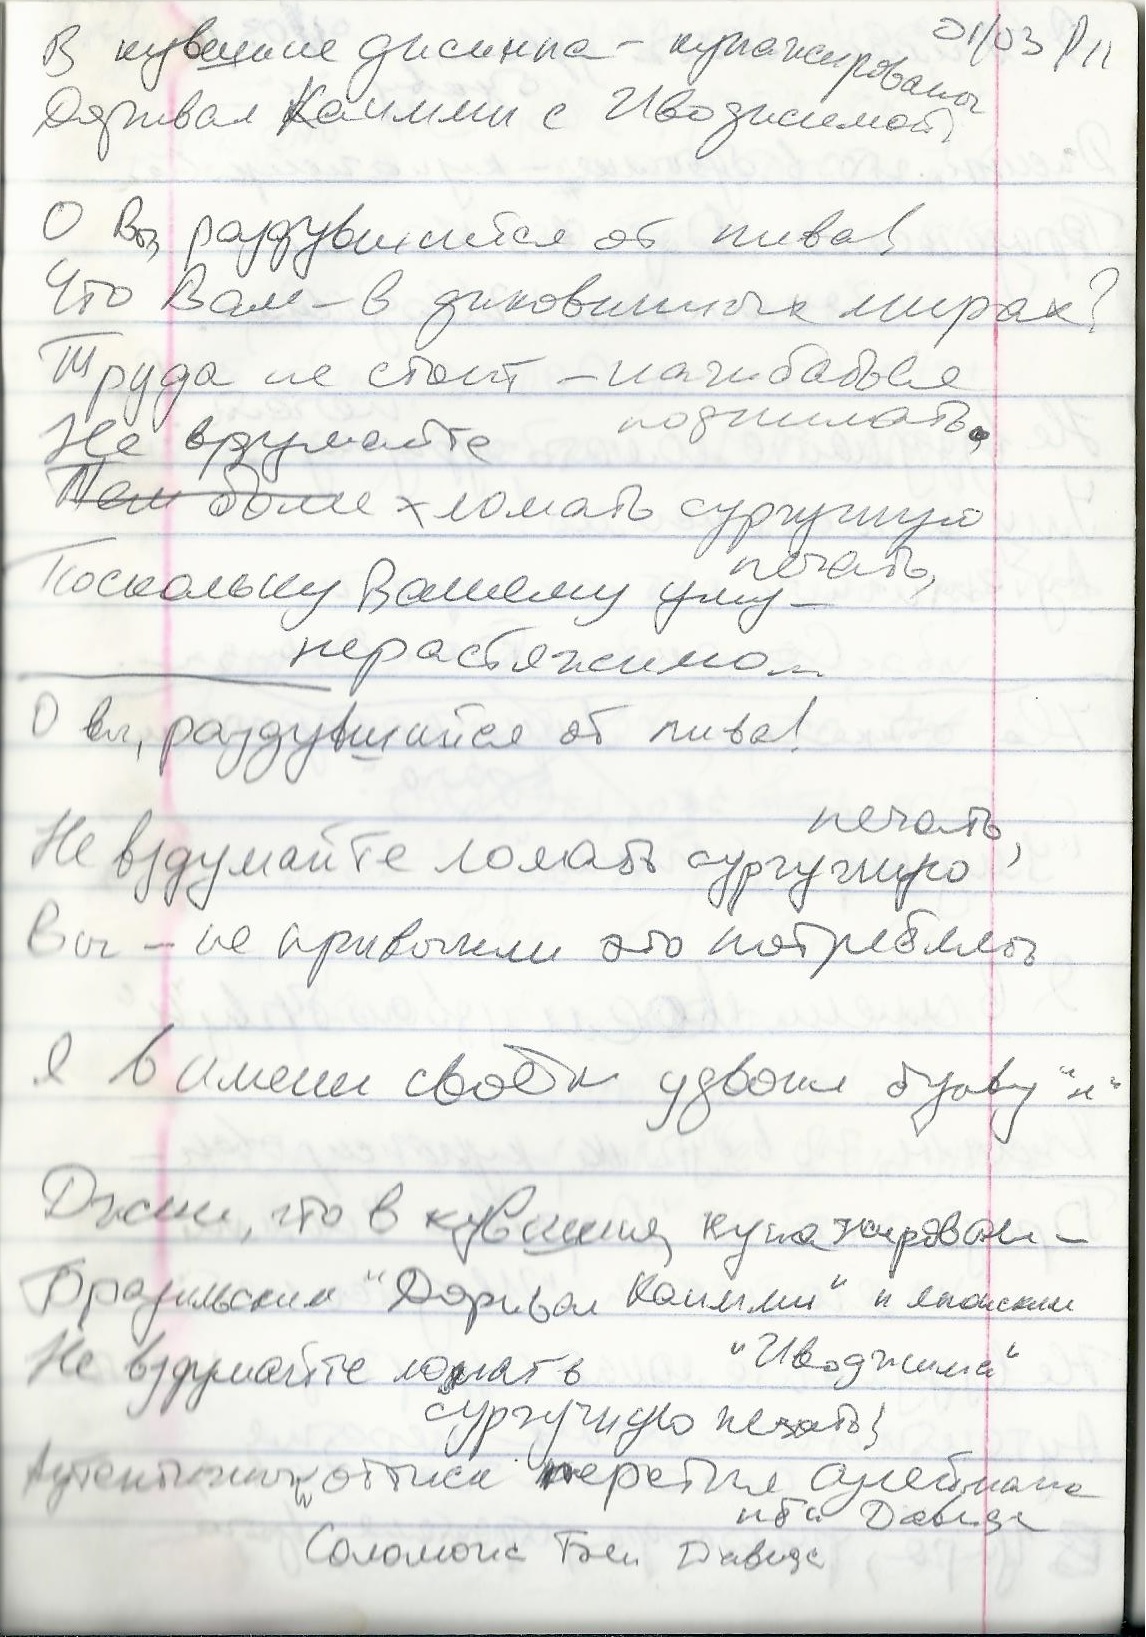 В кувшине джинна - купажированы
21/03 P11
Доривал Каимми с Иводзимой,
О Вы, раздувшийся от пива!
Что Вам - в диковинных мирах?
Труда не стоит - нагибаться
поднимать,
Не вздумайте
Тем более ломать сургучную
печать,
Поскольку Вашему уму -
нерастяжимо...
О вы, раздувшийся от пива!
печать,
Не вздумайте ломать сургучную
Вы - не привыкли это потреблять
Я в имени своём удвоил букву "н"
Джин, что в кувшине, купажирован -
Бразильским "Доривал Каимми" и японским
"Иводжима"
Не вздумайте ломать
сургучную печать!
Аутентичный оттиск перстня Сулеймана
ибн Давида
Соломона Бен Давида